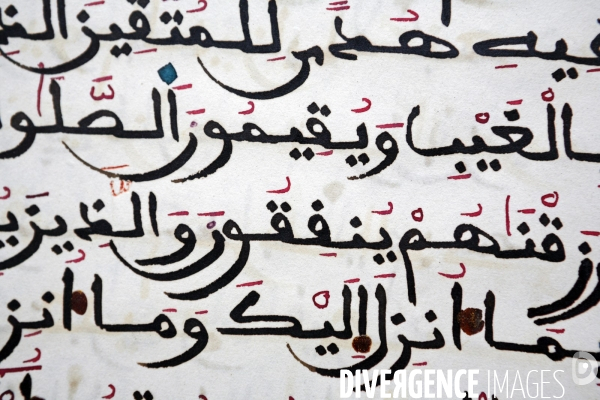 فيه هدى للمتقين الذ
بالغيب ويقيمون الصلو
رزقنهم ينفقون والذين ي
بما انزل اليك وما انز
DIVERGENCE IMAGES